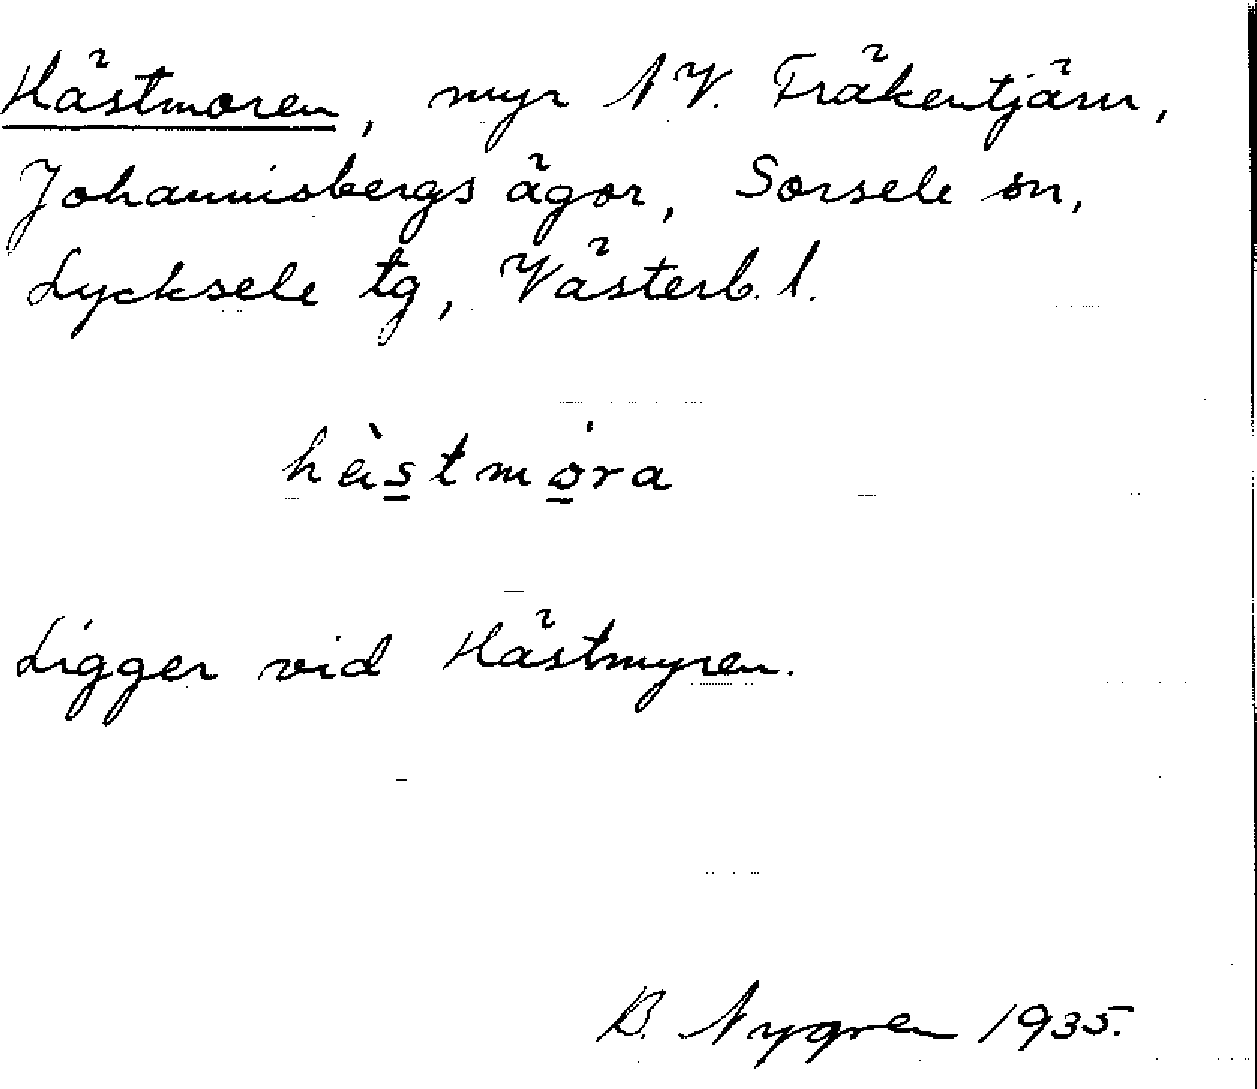 Hästmoren, myr NV. Fräkentjärn,
Johannisbergs ägor, Sorsele sn,
Lycksele tg, Västerb. l.
hàs̲tmo̲̍ra
Ligger vid Hästmyren.
B. Nygren 1935.